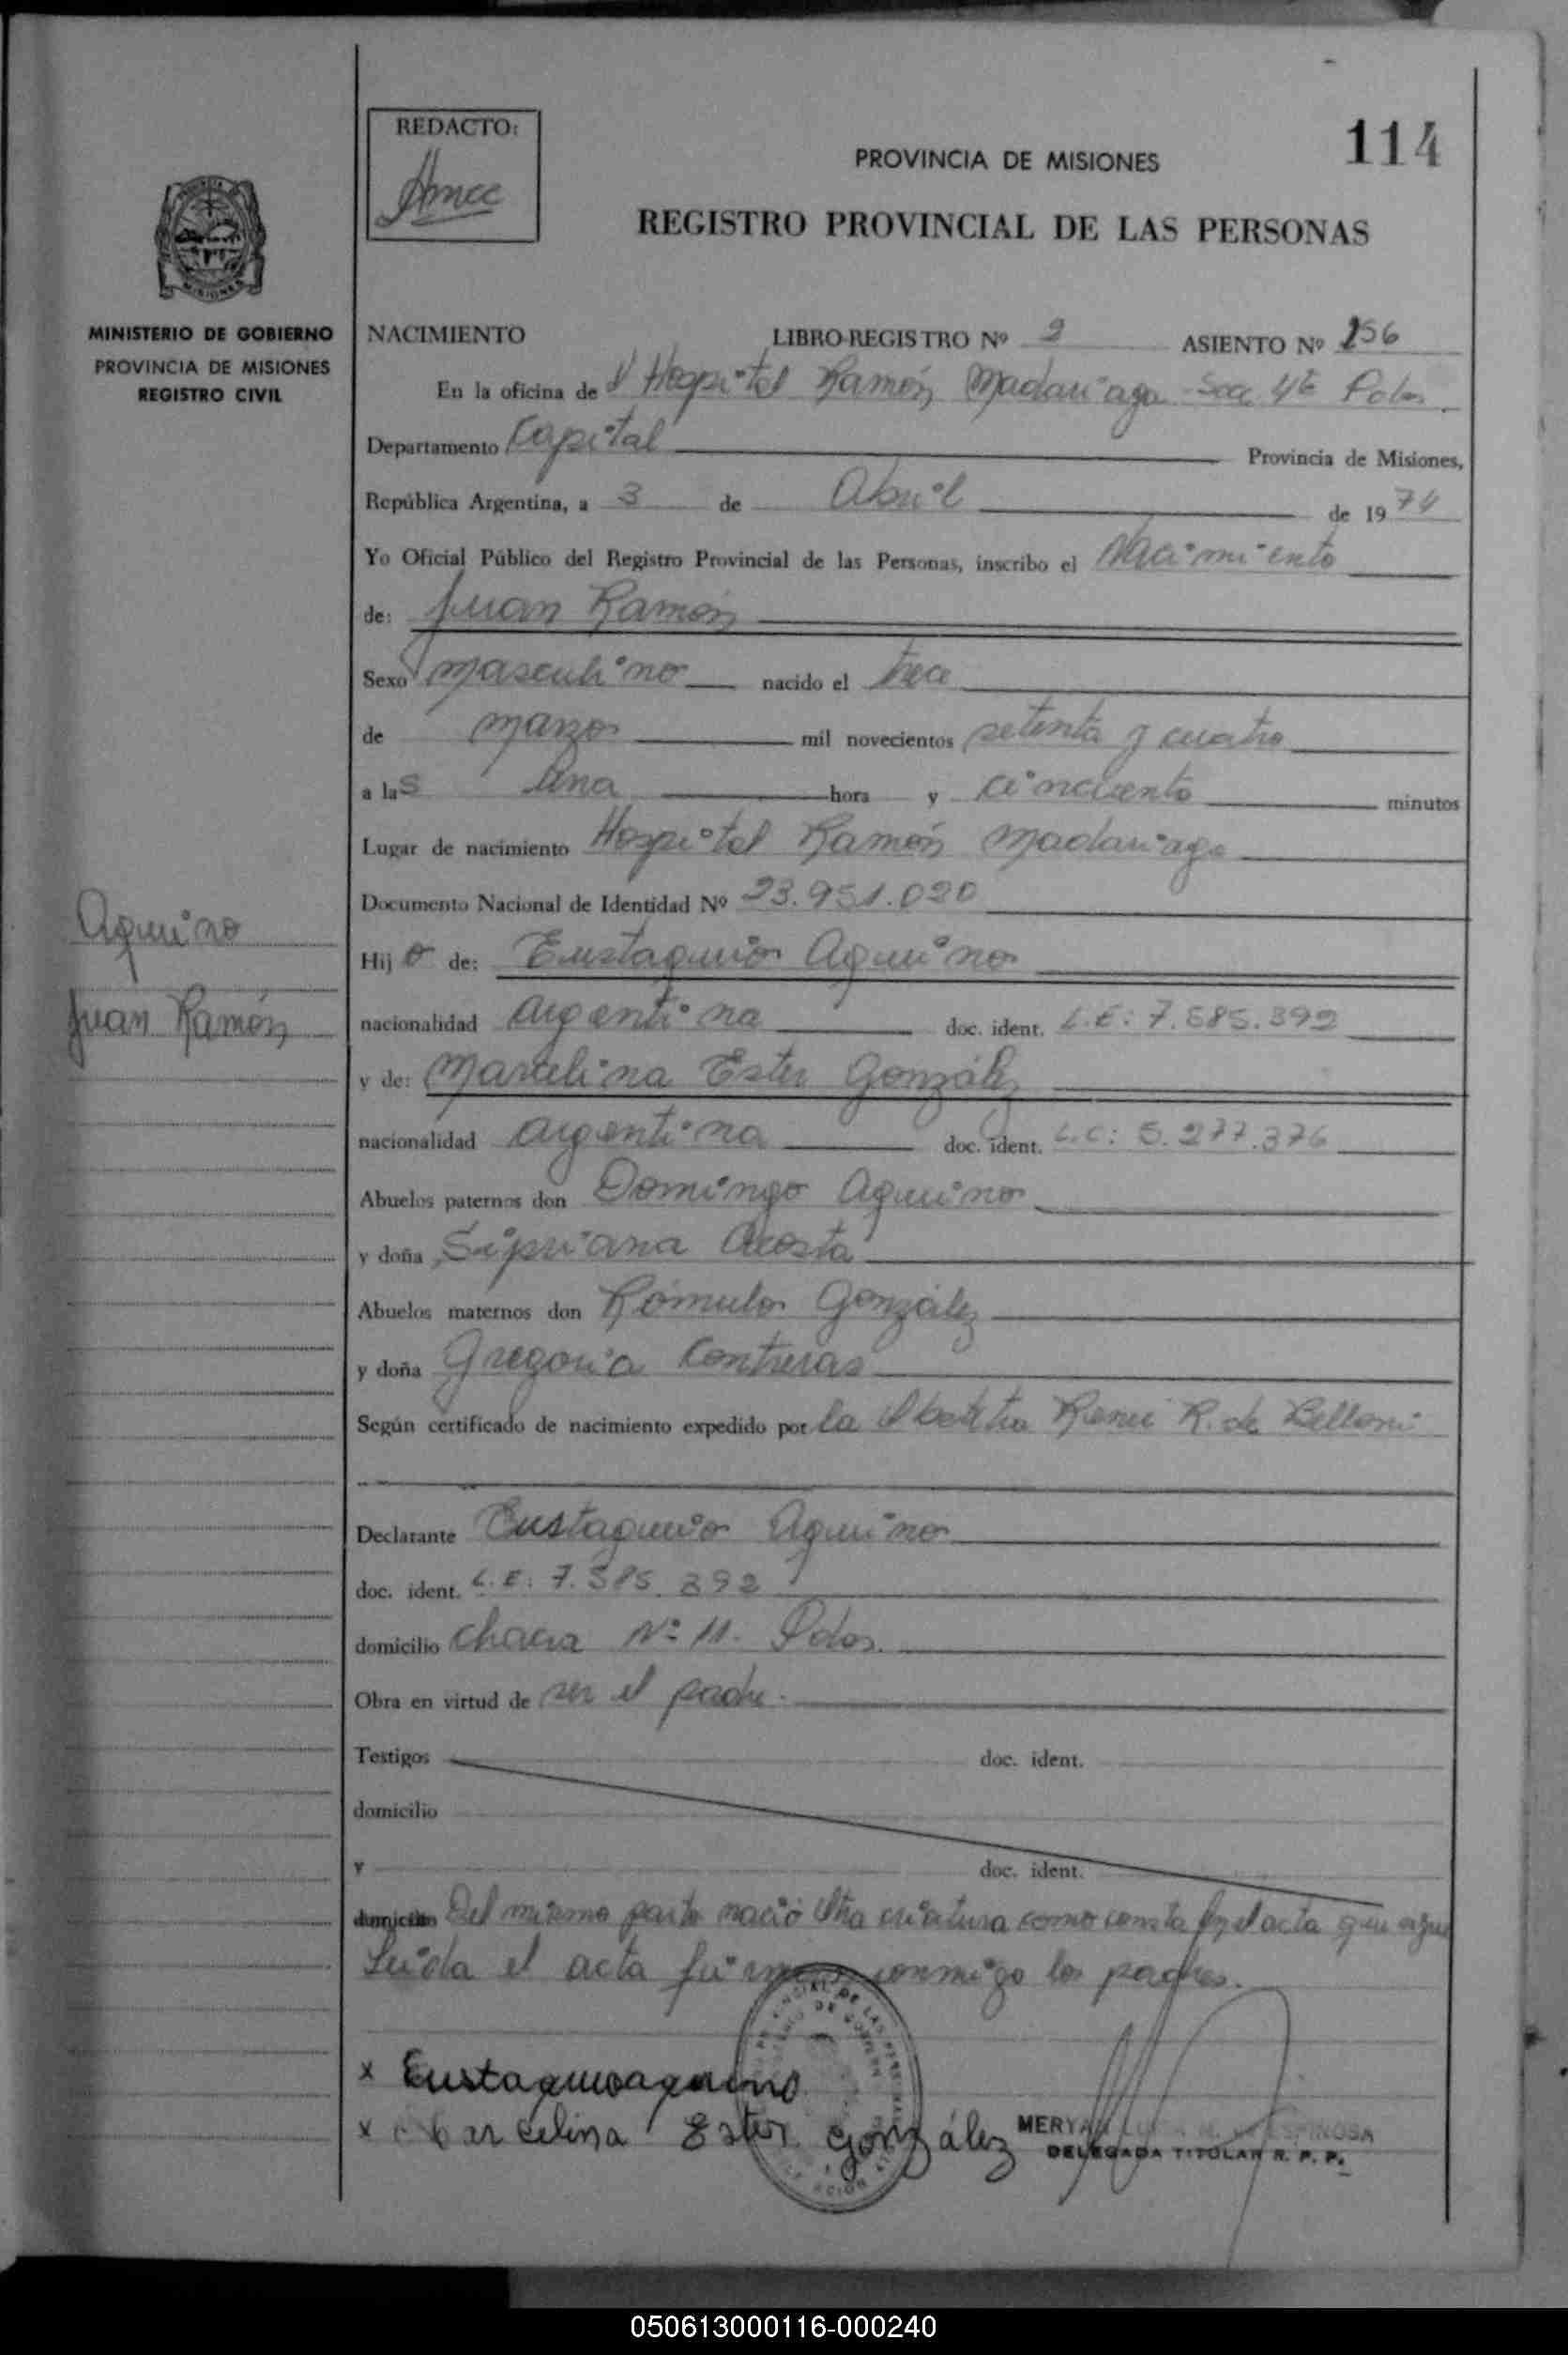 REDACTO:
114
PROVINCIA DE MISIONES
REGISTRO PROVINCIAL DE LAS PERSONAS
MINISTERIO DE GOBIERNO
PROVINCIA DE MISIONES
REGISTRO CIVIL
NACIMIENTO LIBRO-REGISTRO Nº 2 ASIENTO Nº 256
En la oficina de Hospital Ramón Madariaga Secc 4ta
Departamento Capital Provincia de Misiones,
República Argentina, a 3 de Abril de 1974
Yo Oficial Público del Registro Provincial de las Personas, inscribo el Nacimiento
de: Juan Ramón
Sexo masculino nacido el trece
de marzo mil novecientos setenta y cuatro
a las una hora y cincuenta minutos
Lugar de nacimiento Hospital Ramón Madariaga
Documento Nacional de Identidad Nº 23.951.020
Aquino
Juan Ramón
Hijo de: Eustaquio Aquino
nacionalidad argentina doc. ident. L.E: 7.585.392
y de: Marcelina Ester González
nacionalidad argentina doc. ident. L.C: 5.277.376
Abuelos paternos don Domingo Aquino
y doña Sipriana Acosta
Abuelos maternos don Rómulo González
y doña Gregoria Contreras
Según certificado de nacimiento expedido por la Obstetra R. de Belloni
Declarante Eustaquio Aquino
doc. ident. L.E: 7.585.392
domicilio chacra Nº 11. Pdas.
Obra en virtud de ser el padre.
Testigos doc. ident.
domicilio
y doc. ident.
domicilio Del mismo parto nació otra criatura como consta en el acta que sigue
Leída el acta firman conmigo los padres.
x Eustaquio aquino
x Marcelina Ester González
MERYAN ESPINOSA
DELEGADA TITULAR R. P. P.
050613000116-000240